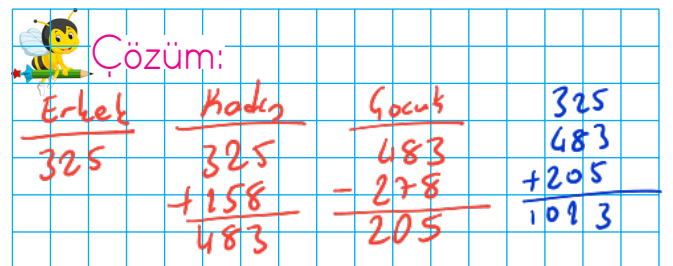 Çözüm:
Erkek
325
Kadın
325
+158
483
Çocuk
483
- 278
205
325
483
+205
1013